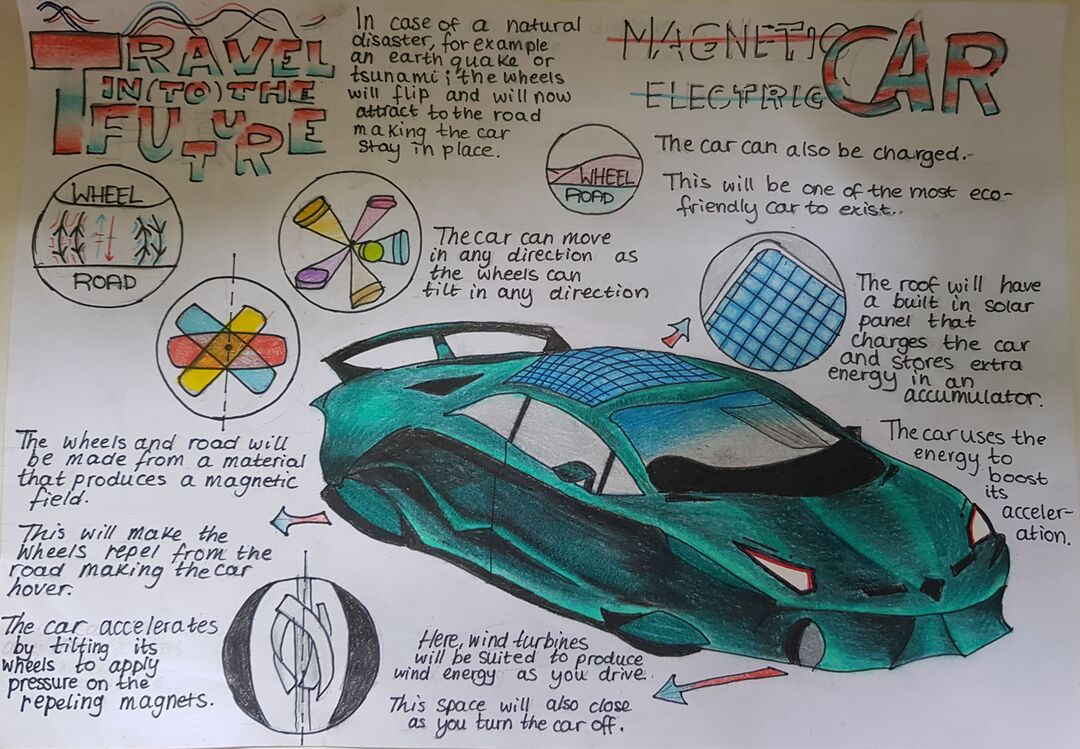 TRAVEL
IN(TO)THE
FUTURE
In case of a natural
disaster, for example
an earthquake or
tsunami; the wheels
will flip and will now
attract to the road
making the car
stay in place.
MAGNETIC
ELECTRIC
CAR
The car can also be charged.-
This will be one of the most eco-
friendly car to exist..
WHEEL
ROAD
WHEEL
ROAD
The car can move
in any direction as
the wheels can
tilt in any direction
The roof will have
a built in solar
panel that
charges the car
and stores extra
energy in an
accumulator.
The car uses the
energy to
boost
its
acceler-
ation.
The wheels and road will
be made from a material
that produces a magnetic
field.
This will make the
wheels repel from the
road making the car
hover.
The car accelerates
by tilting its
wheels to apply
pressure on the
repeling magnets.
Here, wind turbines
will be suited to produce
wind energy as you drive.
This space will also close
as you turn the car off.